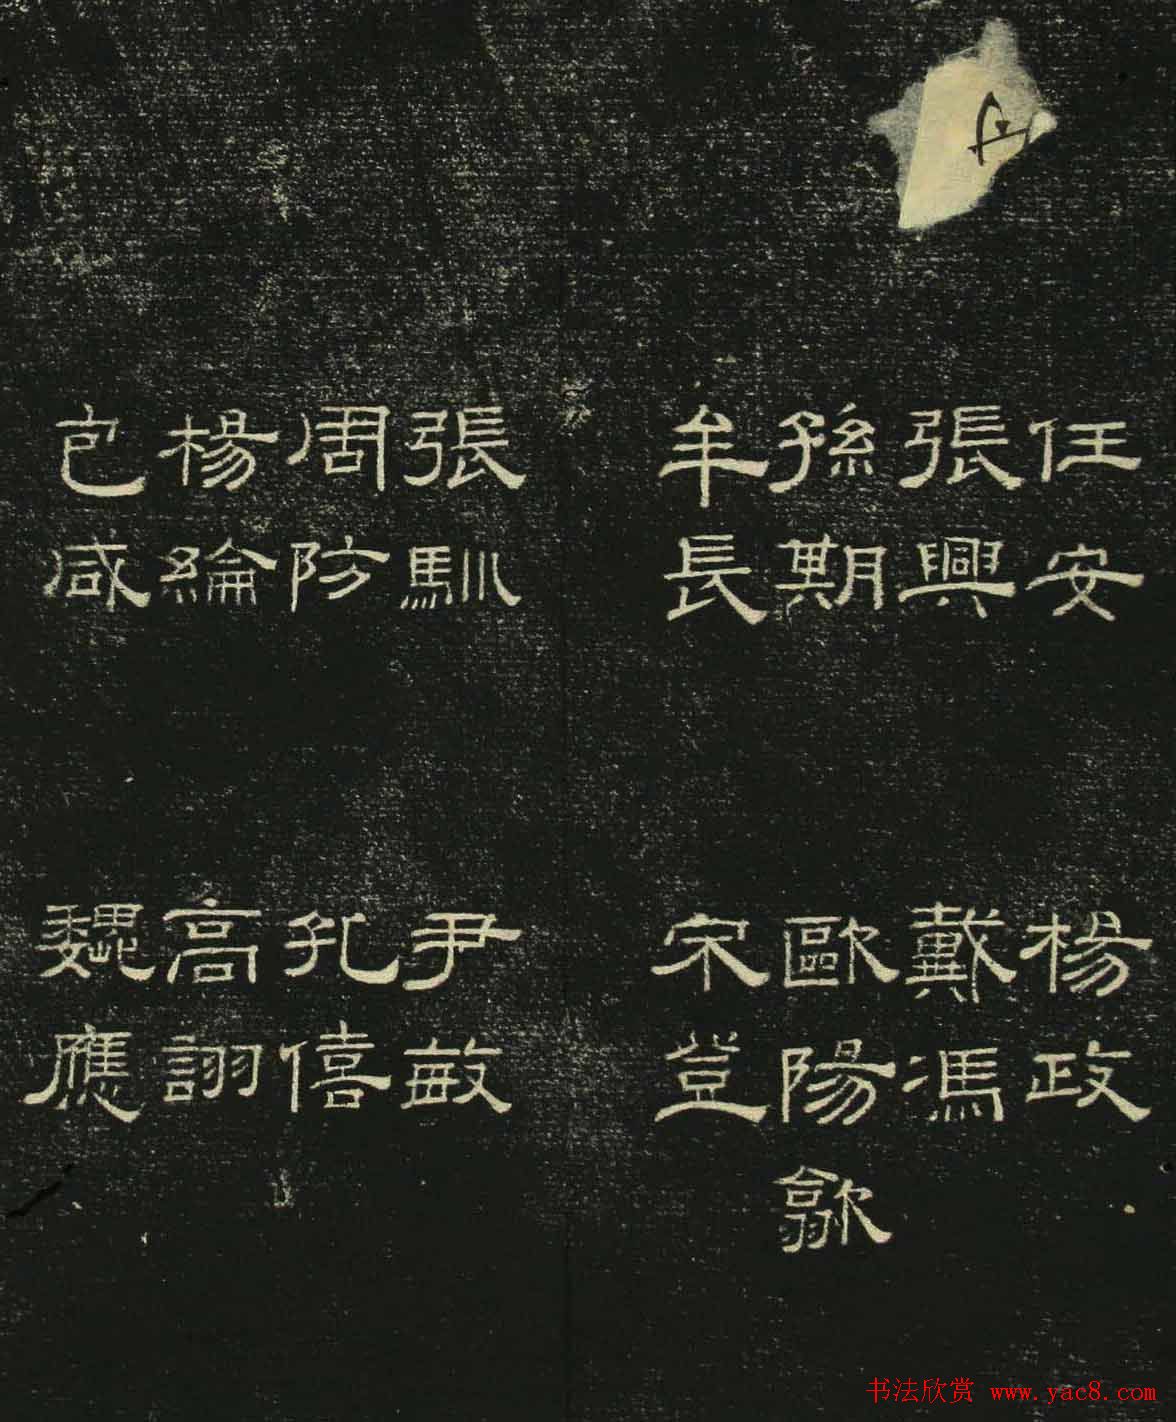 任安
張興
孫期
牟長
張馴
周防
楊綸
包咸
楊政
戴馮
歐陽歙
宋登
尹敏
孔僖
高詡
魏應
书法欣赏 www.yac8.com